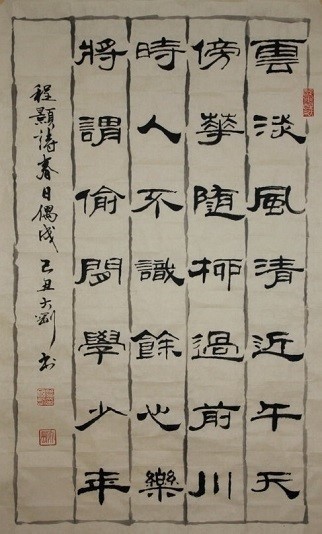 雲淡風清近午天
傍華隨柳過前川
時人不識餘心樂
將謂偷閑學少年
程顥詩春日偶成 己丑大劉書